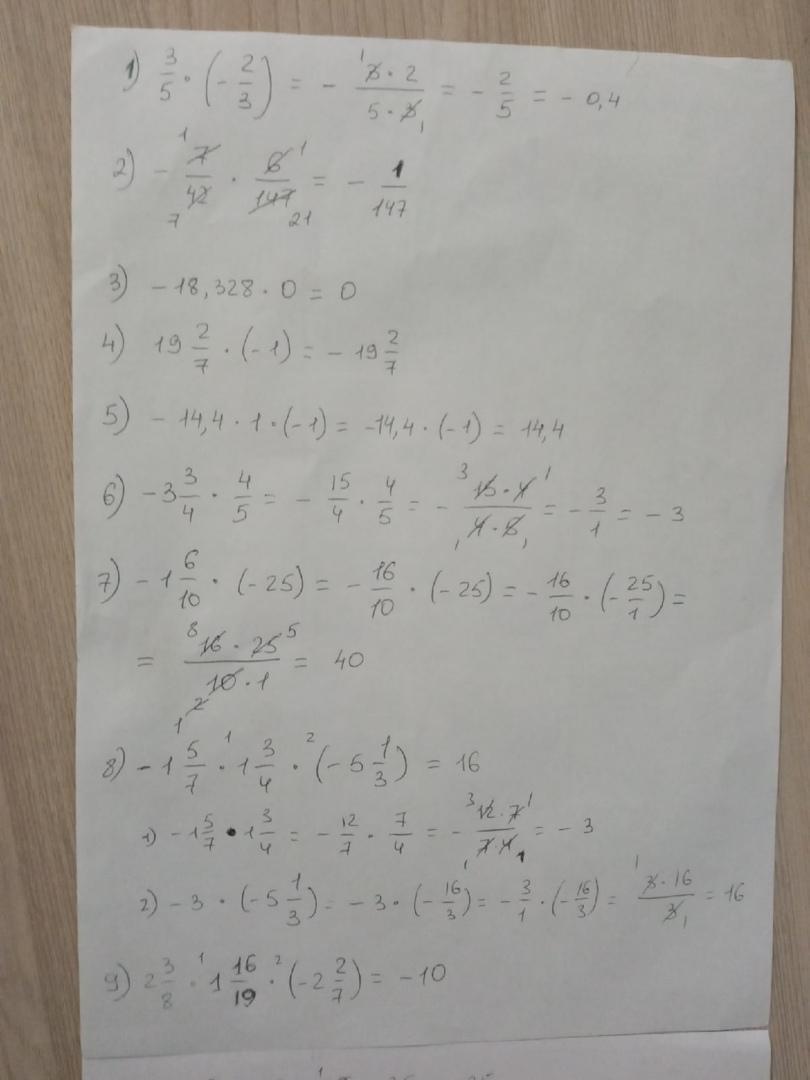 1) 3/5 · (-2/3) = - (3 · 2)/(5 · 3) = - 2/5 = - 0,4
2) - 7/42 · 6/147 = - 1/147
3) - 18,328 · 0 = 0
4) 19 2/7 · (-1) = - 19 2/7
5) - 14,4 · 1 · (-1) = -14,4 · (-1) = 14,4
6) -3 3/4 · 4/5 = - 15/4 · 4/5 = - (15 · 4)/(4 · 5) = - 3/1 = - 3
7) - 1 6/10 · (-25) = - 16/10 · (-25) = - 16/10 · (- 25/1) =
= (16 · 25)/(10 · 1) = 40
8) - 1 5/7 · 1 3/4 · (-5 1/3) = 16
1) -1 5/7 · 1 3/4 = - 12/7 · 7/4 = - (12 · 7)/(7 · 4) = - 3
2) - 3 · (-5 1/3) = - 3 · (- 16/3) = - 3/1 · (- 16/3) = (3 · 16)/3 = 16
9) 2 3/8 · 1 16/19 · (-2 2/7) = - 10